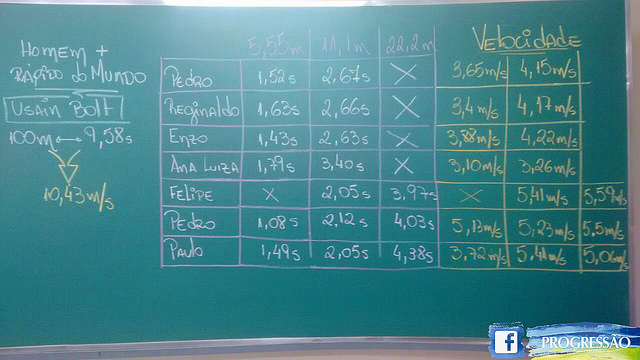 Homem +
Rápido do Mundo
Usain Bolt
100m 9,58s
10,43m/s
5,55m 11,1m 22,2m Velocidade
Pedro 1,52s 2,67s X 3,65m/s 4,15m/s
Reginaldo 1,63s 2,66s X 3,4m/s 4,17m/s
Enzo 1,43s 2,63s X 3,88m/s 4,22m/s
Ana Luiza 1,79s 3,40s X 3,10m/s 3,26m/s
Felipe X 2,05s 3,97s X 5,41m/s 5,59m/s
Pedro 1,08s 2,12s 4,03s 5,13m/s 5,23m/s 5,5m/s
Paulo 1,49s 2,05s 4,38s 3,72m/s 5,41m/s 5,06m/s
f PROGRESSÃO